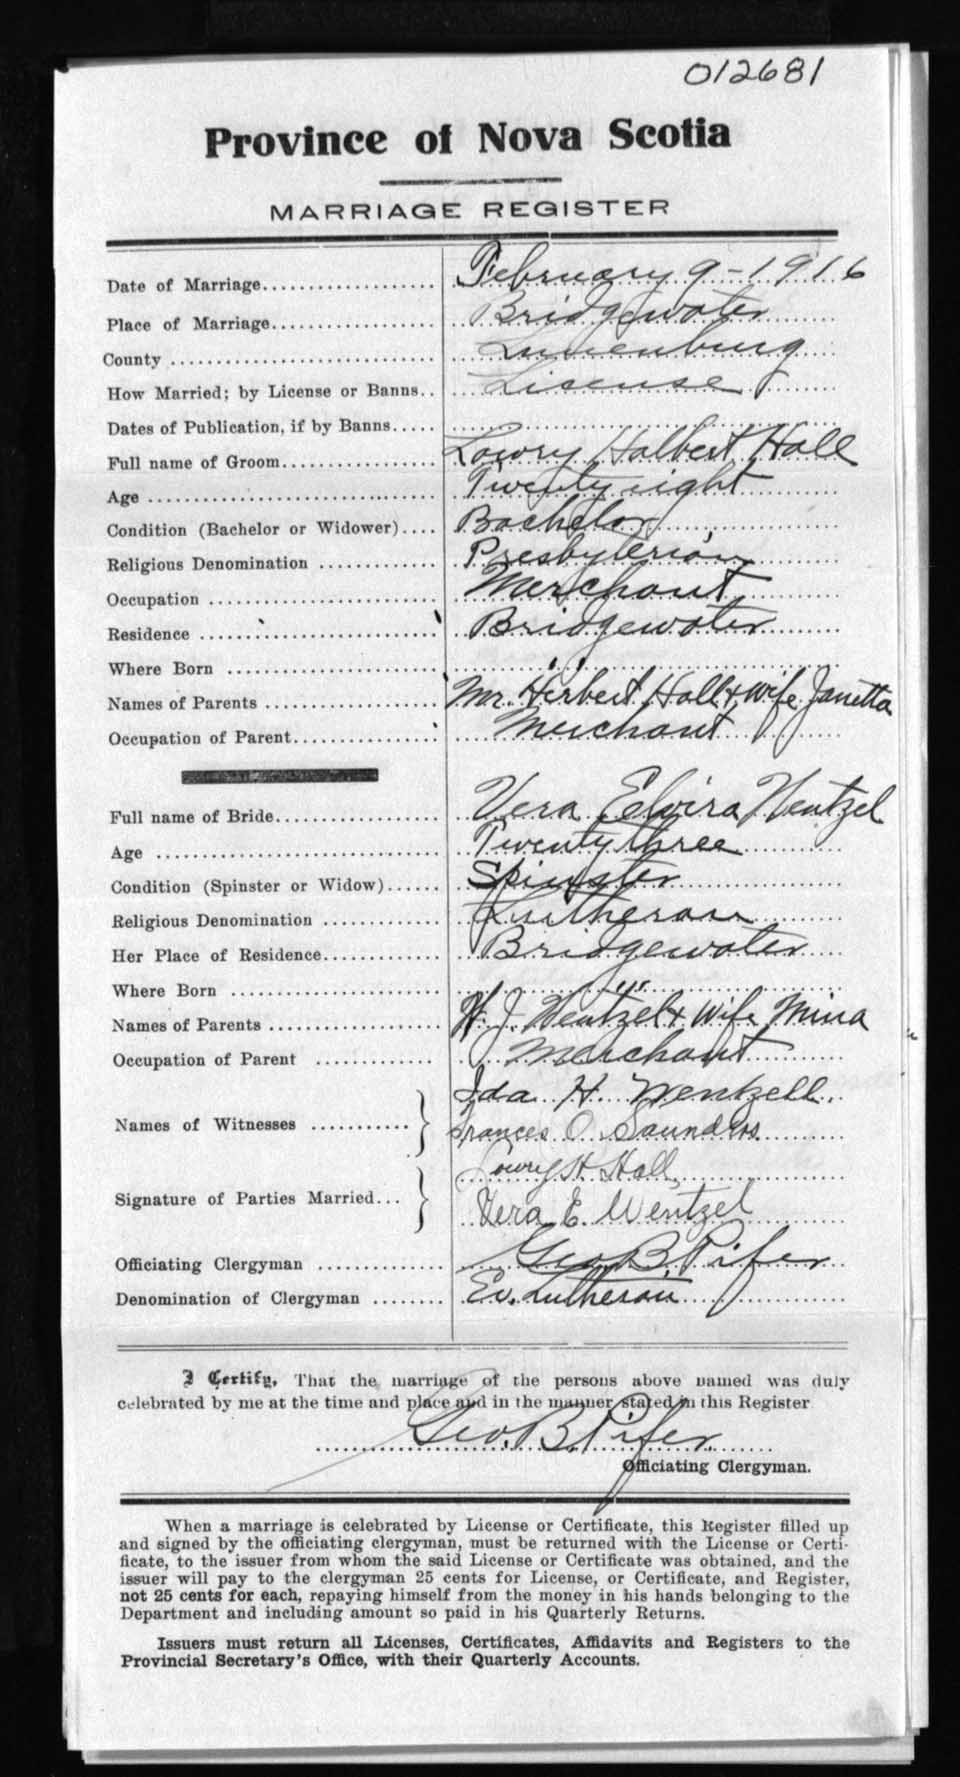 012681
Province of Nova Scotia
MARRIAGE REGISTER
Date of Marriage.................... February 9-1916
Place of Marriage................... Bridgewater
County .............................. Lunenburg
How Married; by License or Banns.. License
Dates of Publication, if by Banns.....
Full name of Groom.................. Lowry Halbert Hall
Age ................................. Twenty eight
Condition (Bachelor or Widower).... Bachelor
Religious Denomination .............. Presbyterian
Occupation .......................... Merchant
Residence ........................... Bridgewater
Where Born .......................... " "
Names of Parents .................... Mr. Herbert Hall & wife Janetta
Occupation of Parent................. Merchant
Full name of Bride................... Vera Elvira Wentzel
Age ................................. Twenty three
Condition (Spinster or Widow)...... Spinster
Religious Denomination .............. Lutheran
Her Place of Residence.............. Bridgewater
Where Born .......................... " "
Names of Parents .................... W. J. Wentzel & wife Mina
Occupation of Parent ............... Merchant
Names of Witnesses ........... Ida H. Wentzell.
Frances O. Saunders
Signature of Parties Married... Lowry H Hall
Vera E. Wentzel
Officiating Clergyman ............... Geo. B. Pifer
Denomination of Clergyman ........ Ev. Lutheran
I Certify, That the marriage of the persons above named was duly
celebrated by me at the time and place and in the manner stated in this Register
Geo. B. Pifer
Officiating Clergyman.
When a marriage is celebrated by License or Certificate, this Register filled up
and signed by the officiating clergyman, must be returned with the License or Certi-
ficate, to the issuer from whom the said License or Certificate was obtained, and the
issuer will pay to the clergyman 25 cents for License, or Certificate, and Register,
not 25 cents for each, repaying himself from the money in his hands belonging to the
Department and including amount so paid in his Quarterly Returns.
Issuers must return all Licenses, Certificates, Affidavits and Registers to the
Provincial Secretary's Office, with their Quarterly Accounts.